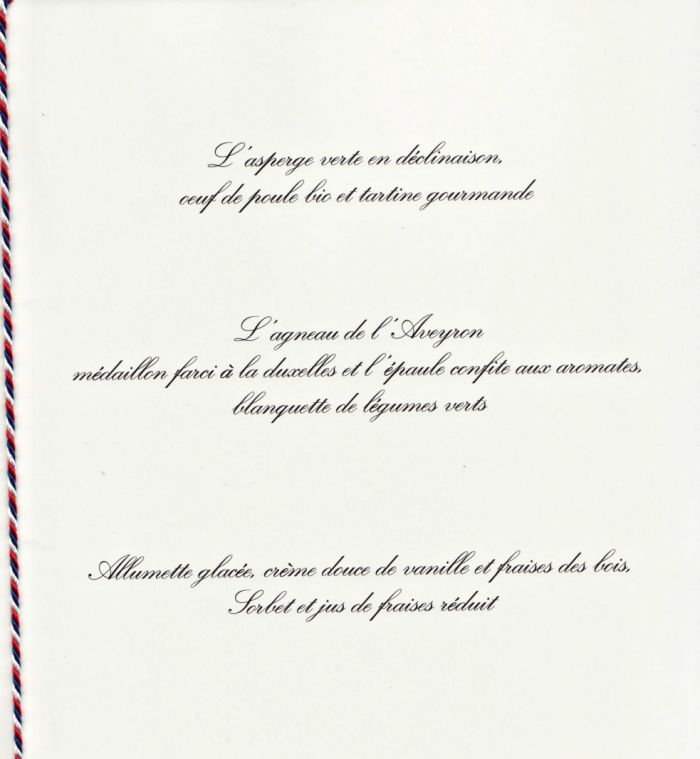 L'asperge verte en déclinaison,
oeuf de poule bio et tartine gourmande
L'agneau de l'Aveyron
médaillon farci à la duxelles et l'épaule confite aux aromates,
blanquette de légumes verts
Allumette glacée, crème douce de vanille et fraises des bois,
Sorbet et jus de fraises réduit